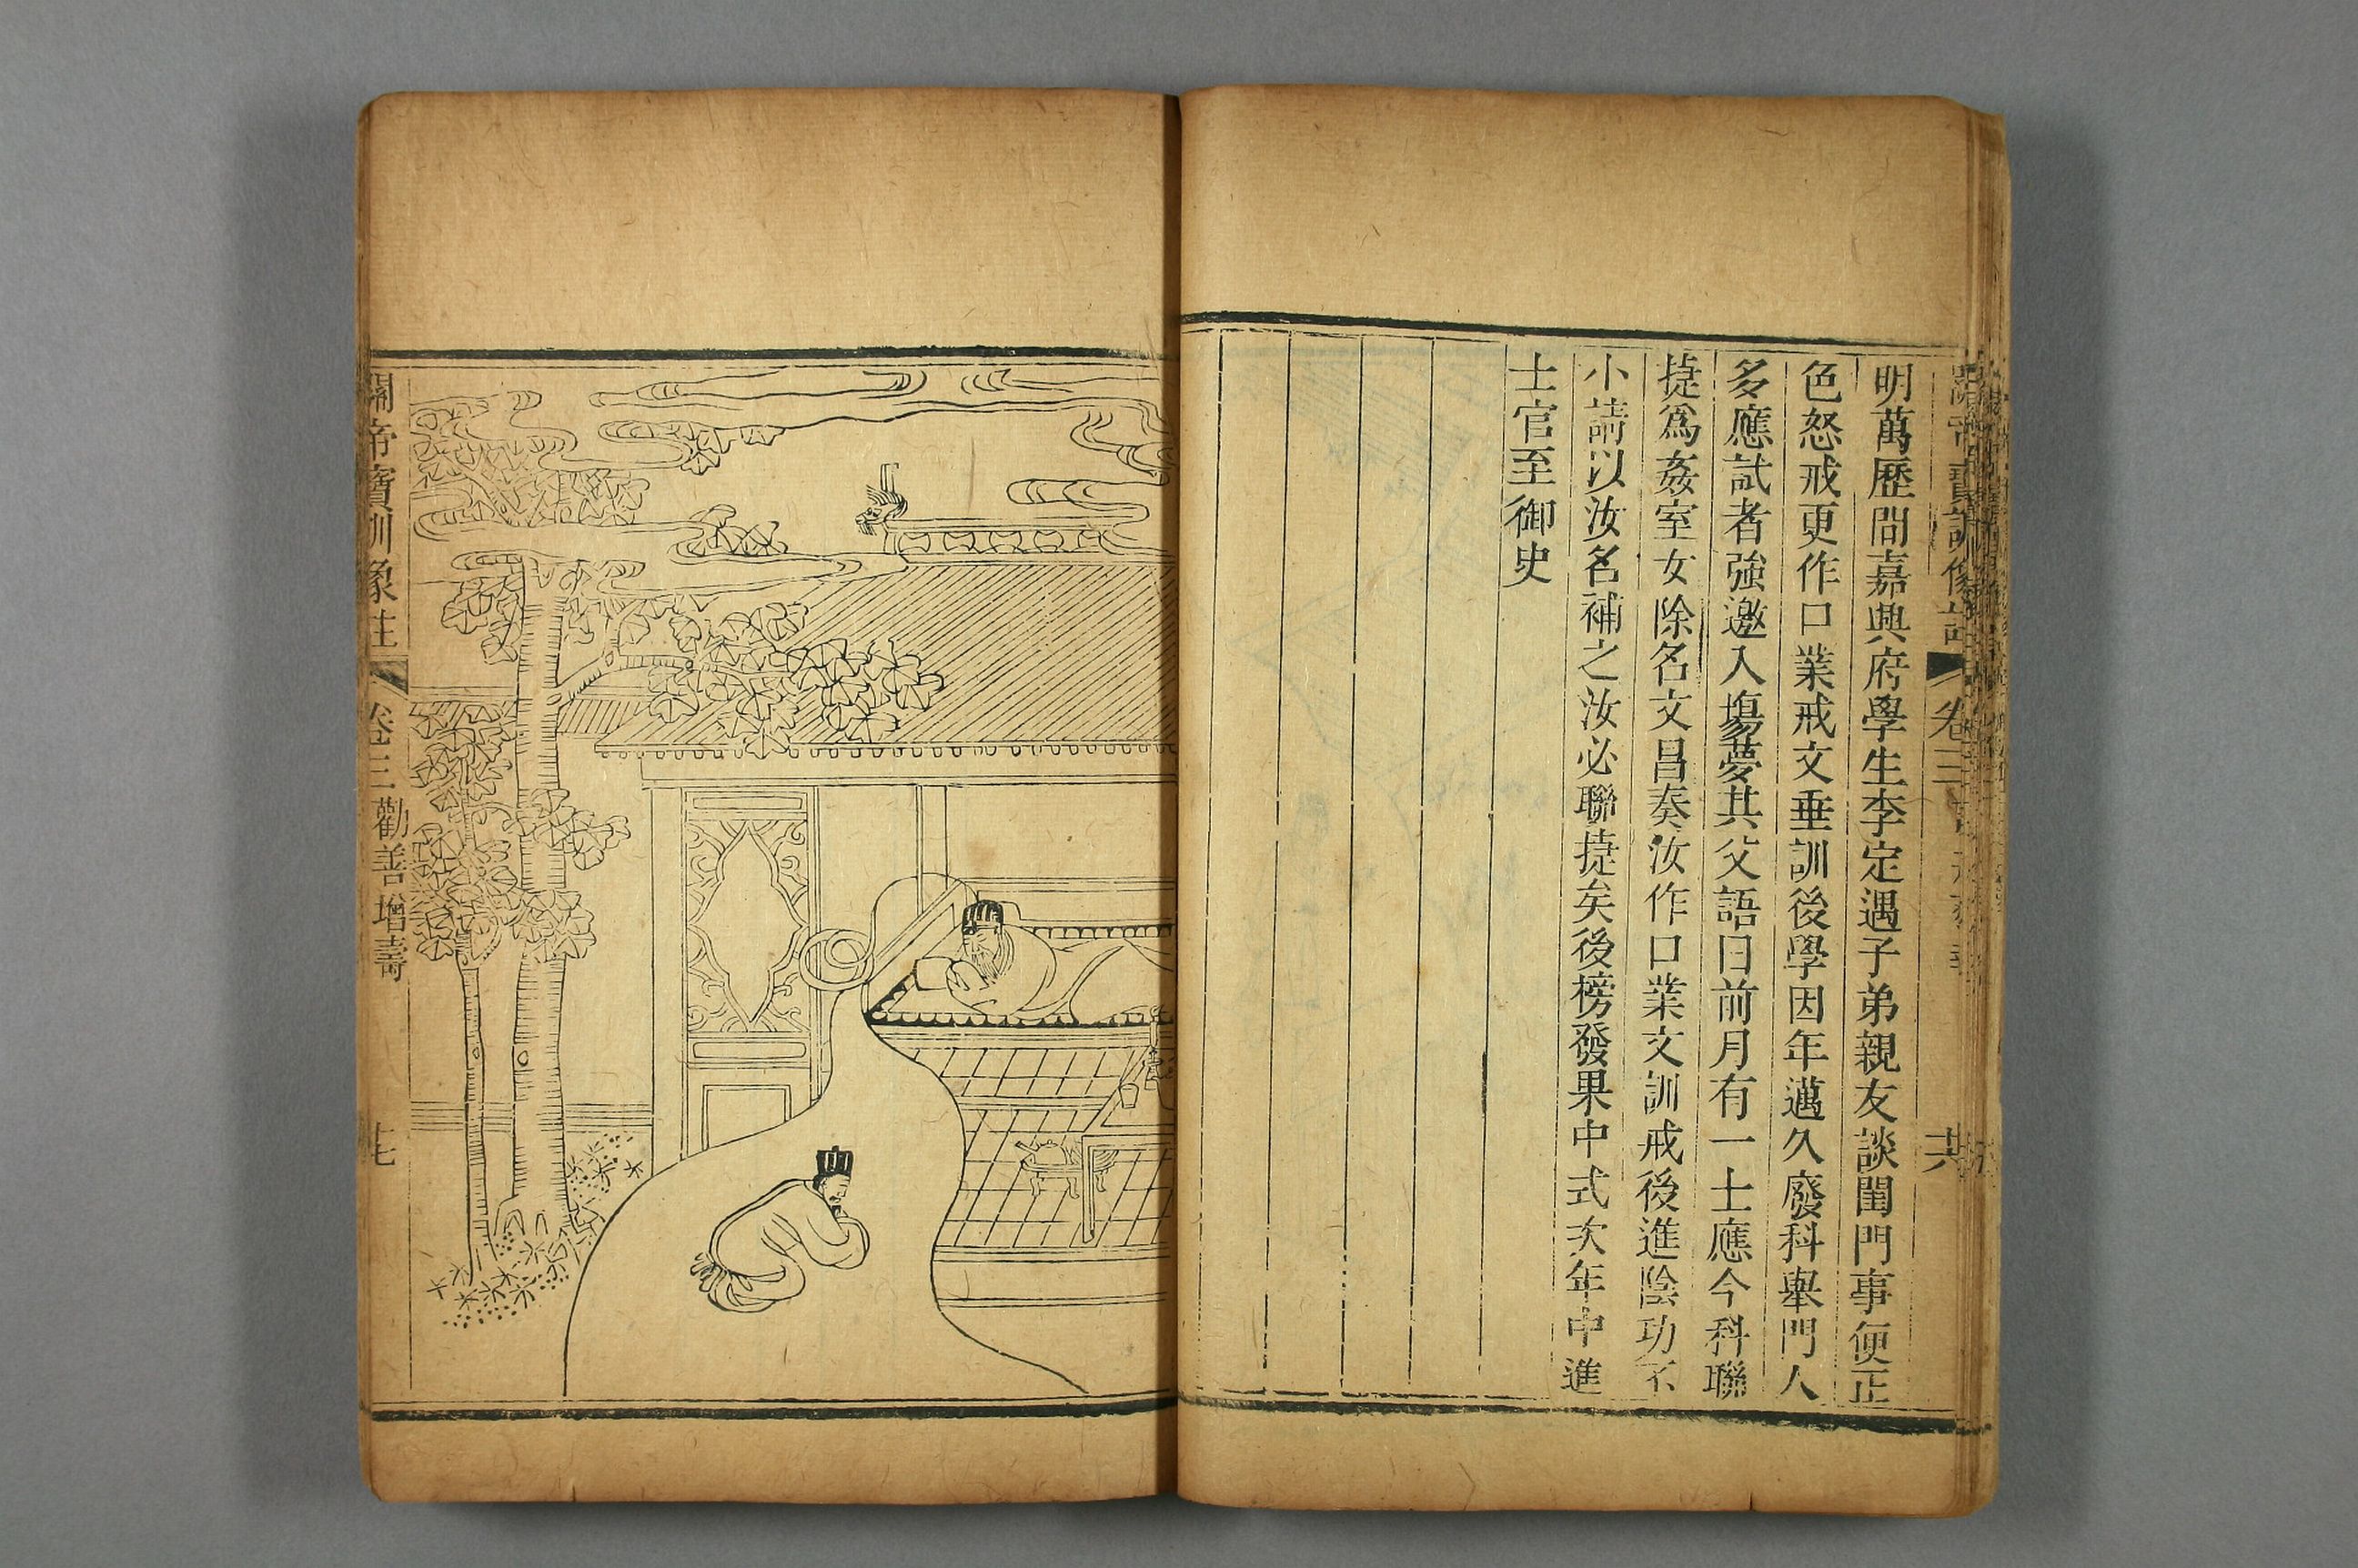 明萬歷間嘉興府學生李定遇子弟親友談閨門事便正
色怒戒更作口業戒文垂訓後學因年邁久廢科舉門人
多應試者強邀入場夢其父語曰前月有一士應今科聯
捷爲姦室女除名文昌奏汝作口業文訓戒後進陰功不
小請以汝名補之汝必聯捷矣後榜發果中式次年中進
士官至御史
關帝寶訓象註
卷三
勸善增壽